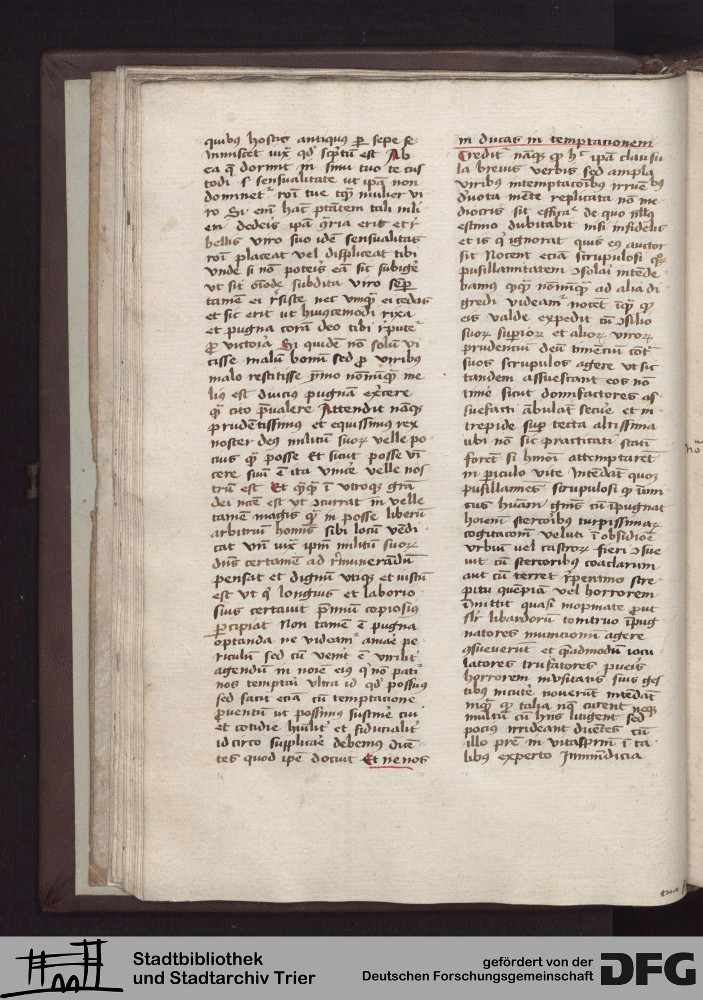 quibus hostis antiquus ꝑ sepe se
inmiscet vix qd' sc'ptu est Ab
ea q dormit in sinu tuo te cus
todi s' sensualitate ut ipa non
dominet' roni tue tqȝ mulier vi
ro Si em hac ptatem tali muli
eri dederis ipa q̄ria erit et r
bellis viro suo idem sensualitas
roni placeat vel displiceat tibi
vnde si no poteris ea sic subige
ut sit oīode subdita viro semꝑ
tamē ei r̄siste nec vnqȝ ei cedas
et sic erit ut huiuscemodi rixa
et pugna cora deo tibi r̄putet'
ꝓ victoria Si quidē nō solū vi
cisse malū bonū sed ꝓ viribus
malo restitisse ymo nōnūqȝ me
lius est diucius pugnam ex̄cere
qȝ cito p̄ualere Attendit nāqȝ
prudētissimus et equissimus rex
noster deus militū suorꝝ velle po
cius qȝ posse Et sicut posse vī
cere suū ē ita vincē velle nos
trū est Et qȝqȝ ī vtroqȝ grā
dei nccē est ut ɔcurrat in velle
tamē magis qȝ in posse liberū
arbitriū hominis sibi locū vēdi
cat vnī vix ipm militū suorꝝ
dns certamē ad r̄munerandū
pensat et dignū vtiqȝ et iustū
est vt q longius et laborio
sius certauit p̄miū copiosius
ꝑcipiat Non tamē ē pugna
optanda ne videam' amāe pe
riculū sed cū venit ē virilit'
agendū in noīe eius q nō patit'
nos temptari vltra id qd' possimus
sed facit etiā cū temptacione
ꝓuentū ut possimus sustinē cui
et cotidie hūilit' et fiducialit'
id circo supplicāe debemus dicē
tes quod ipē docuit Et ne nos
in ducas in temptacionem
Credit' nāqȝ qꝫ hec ipā clausu
la breuis verbis sed ampla
viribus in temptacōibus irruētibus
deuota mēte replicata nō me
diocris sit efficacie de quo nllūs
estimo dubitabit nisi infidelis
et is q ignorat quis eius auctor
sit Nocent etiā scrupulosi qȝ
pusillanimitatem ɔsolari intēde
bamus qqȝ nōnūqȝ ad alia di
gredi videam' nocet īqȝ qȝ
eis valde expedit cū ɔsilio
suorꝝ superiorꝝ et aliorꝝ virorꝝ
prudentiū deū timētiū cōt'
suos scrupulos agere ut sic
tandem assuescant eos nō
timē sicut domifactores as
suefacti ābulāt secūe et in
trepide sup tecta altissima
ubi nō sic practicati stati
forēt si hmōi attemptaret
in periculo vite Intēdāt quoqȝ
pusillanimes scrupulosi qꝫ inimi
cus humani gn̄is cū īpugnat
hoīem stercoribus turpissimarꝝ
cogitacionū veluti ī obsidione
vrbiū uel castrorꝝ fieri ɔsue
uit cū stercoribus coaclarum
aut cū terret r̄pentino stre
pitu quēpiā vel horrorem
īmittit quasi
natores municionū agere
ɔsueuerūt et quēadmodū iocu
latores trufatores pueris
horrorem inusitatis suis ges
tibus incutē nouerūt intēdāt
inqȝ qꝫ talia nec curent neqȝ
multū cū hiis litigent sed
pocius irrideant dicētes cū
illo prē in vitaspr̄m ī ta
libus experto Immūdicia
Stadtbibliothek
und Stadtarchiv Trier
gefördert von der
Deutschen Forschungsgemeinschaft
DFG